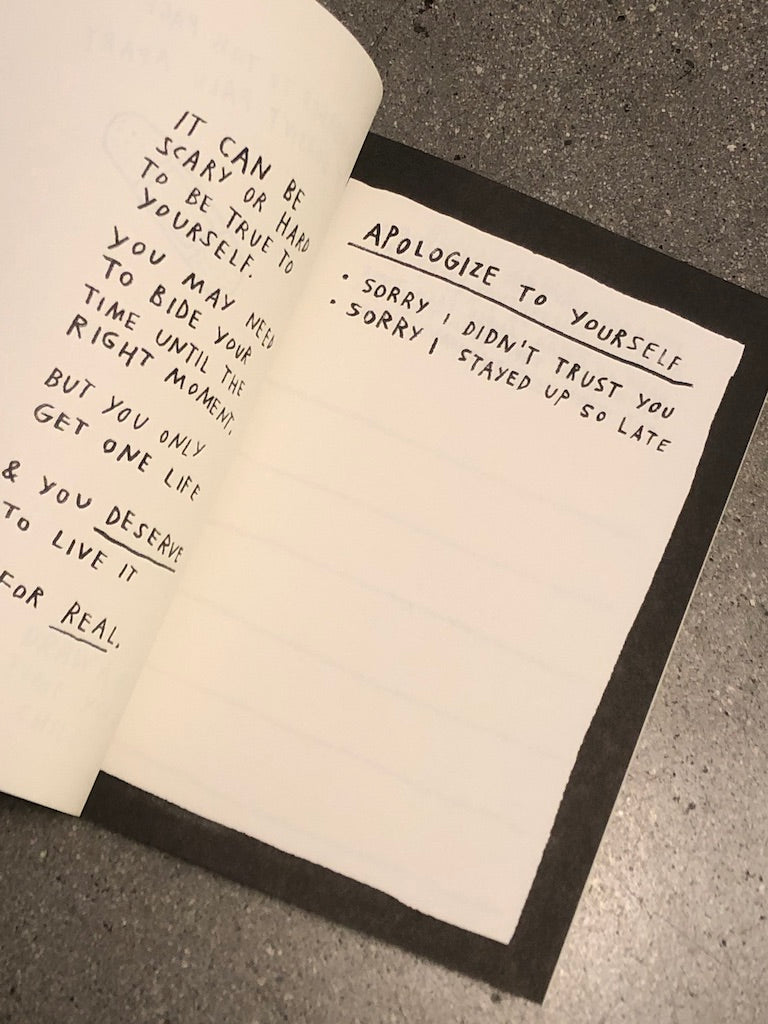 IT CAN BE
SCARY OR HARD
TO BE TRUE TO
YOURSELF.
YOU MAY NEED
TO BIDE YOUR
TIME UNTIL THE
RIGHT MOMENT.
BUT YOU ONLY
GET ONE LIFE
& YOU DESERVE
TO LIVE IT
FOR REAL.
APOLOGIZE TO YOURSELF
• SORRY I DIDN'T TRUST YOU
• SORRY I STAYED UP SO LATE